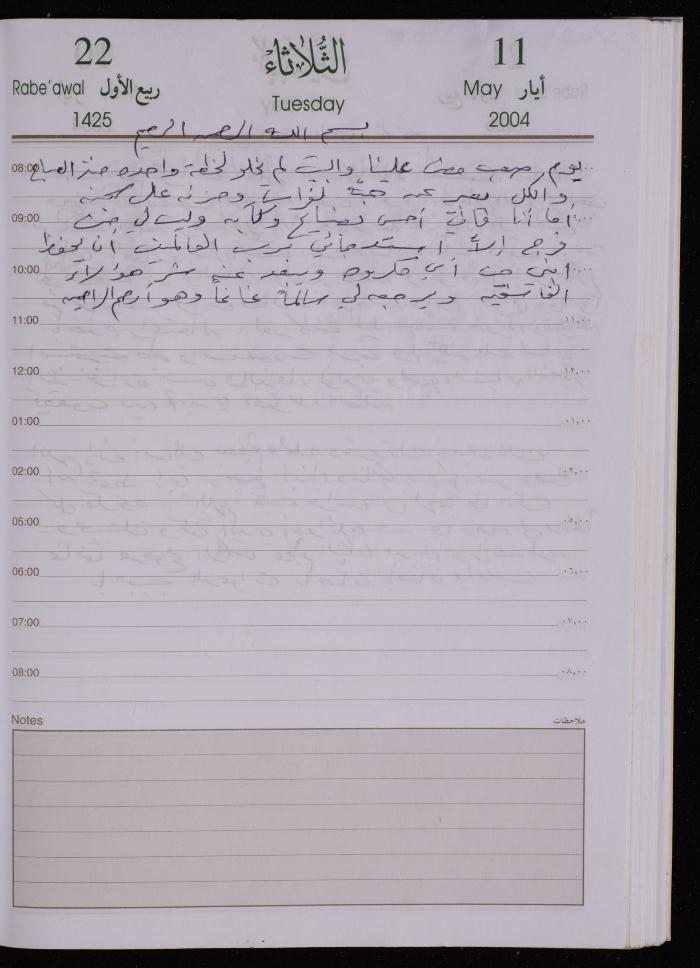 22 الثُّلَاثَاء 11
Rabe'awal ربيع الأول Tuesday May أيار
1425 2004
بسم الله الرحمن الرحيم
08:00 يوم صعب مضى علينا والبيت لم يخلو لحظة واحده منذ الصباح
والكل يعبر عن حبه وحزنه على
09:00 أما أنا فاني أحس بضياع وكآبه وليس لي من
فرج إلا استدعائي لرب العالمين أن يحفظ
10:00 ابني من أي مكروه ويبعد عنه شر هؤلاء
الفاسقين ويرجعه لي سالماً غانماً وهو أرحم الراحمين
11:00 ١١,٠٠
12:00 ١٢,٠٠
01:00 ٠١,٠٠
02:00 ٠٢,٠٠
05:00 ٠٥,٠٠
06:00 ٠٦,٠٠
07:00 ٠٧,٠٠
08:00 ٠٨,٠٠
Notes ملاحظات